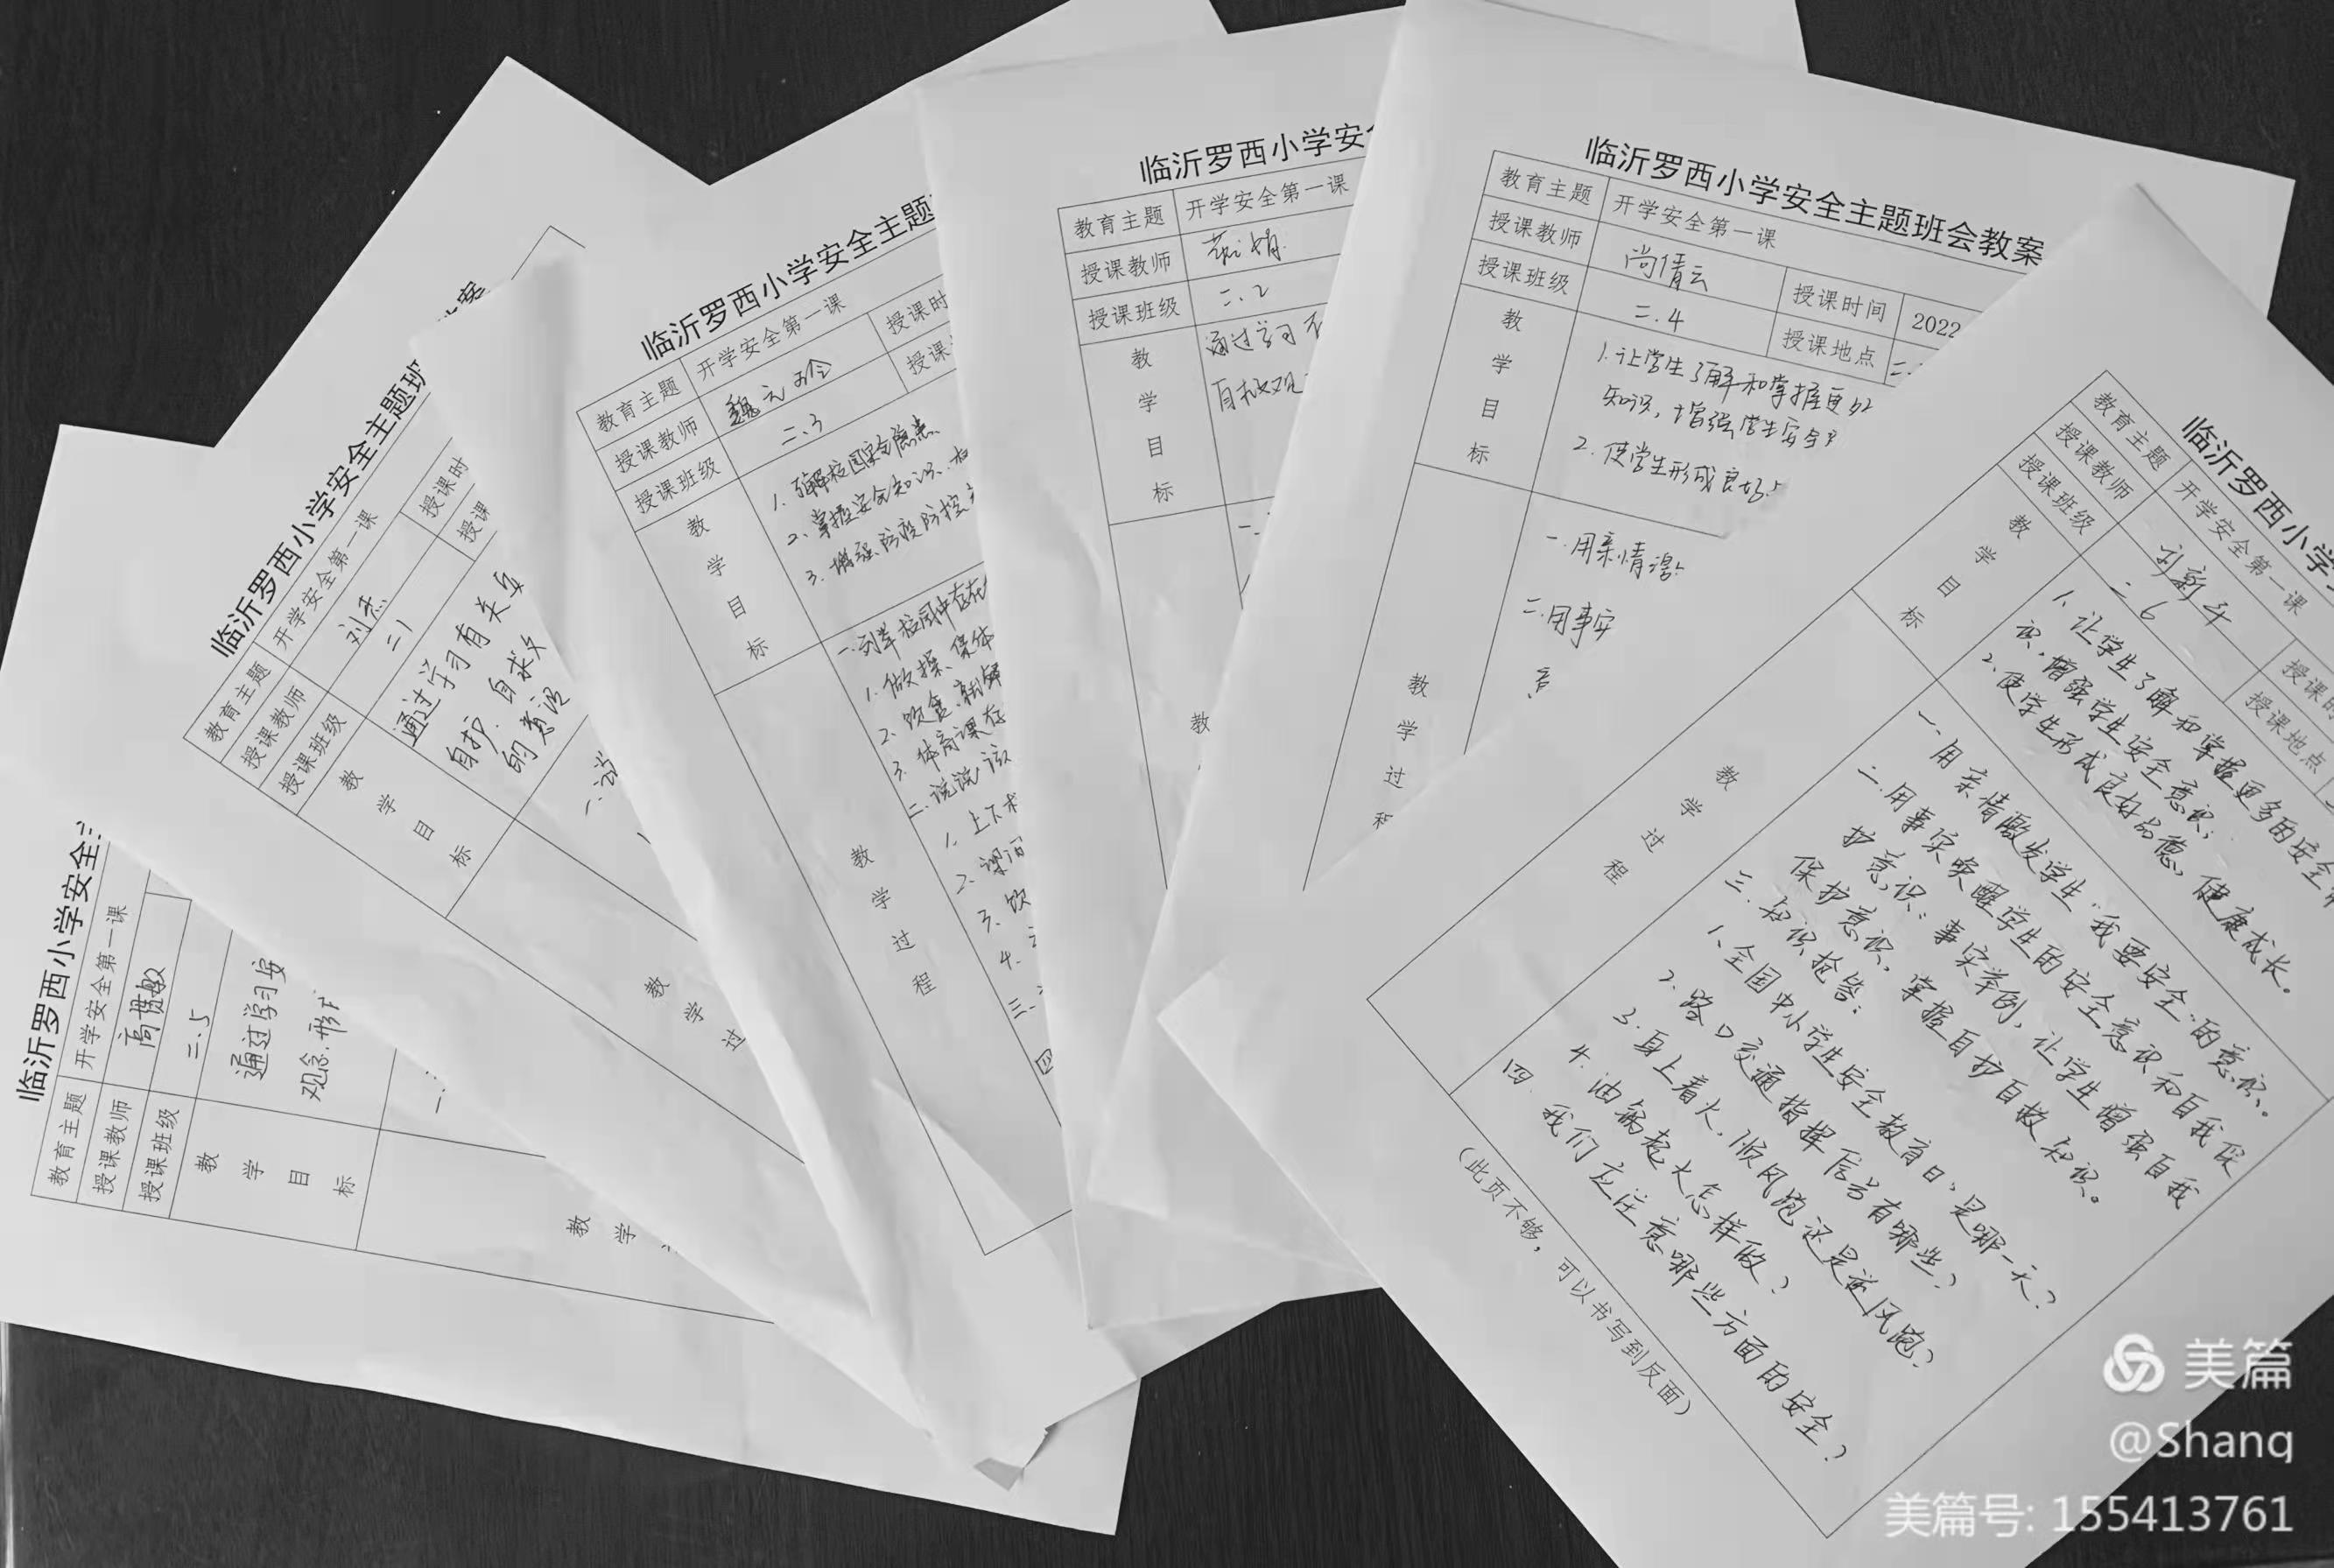 临沂罗西小学安全主
教育主题 开学安全第一课
授课教师 高贯敏
授课班级 二.5
教学目标
通过学习安
观念.形
教学
临沂罗西小学安全主题班
教育主题 开学安全第一课
授课教师 刘杰 授课时
授课班级 二1 授课
教学目标
通过学习有关安
自护.自求
的意识
教学过
临沂罗西小学安全主题
教育主题 开学安全第一课
授课教师 魏元 授课时
授课班级 二.3 授课
教学目标
1.了解校园安全隐患、
2.掌握安全知识、
3.增强防疫防控
教学过程
一.列举校园中存在
1.做操、集体
2.饮食、
3.体育课存
二.说说该
1.上下
2.课间
3.饮
4.
三.
四
临沂罗西小学安全
教育主题 开学安全第一课
授课教师
授课班级 二.2
教学目标
通过学习
自救
教
临沂罗西小学安全主题班会教案
教育主题 开学安全第一课
授课教师 尚倩云 授课时间 2022
授课班级 二.4 授课地点 二.
教学目标
1.让学生了解和掌握更多
知识，增强学生安全
2.使学生形成良好
教学过程
一.用亲情激
二.用事实
意
临沂罗西小学
教育主题 开学安全第一课
授课教师 刘新 授课时
授课班级 二6 授课地点
教学目标
1.让学生了解和掌握更多的安全
识，增强学生安全意识；
2.使学生形成良好品德，健康成长。
教学过程
一.用亲情激发学生“我要安全”的意识。
二.用事实唤醒学生的安全意识和自我保
护意识：事实举例，让学生增强自我
保护意识，掌握自护自救知识。
三.知识抢答：
1.全国中小学生安全教育日，是哪一天？
2.路口交通指挥信号有哪些？
3.身上着火，顺风跑还是逆风跑？
4.油锅起火怎样做？
四.我们应注意哪些方面的安全？
（此页不够，可以书写到反面）
美篇
@Shanq
美篇号: 155413761